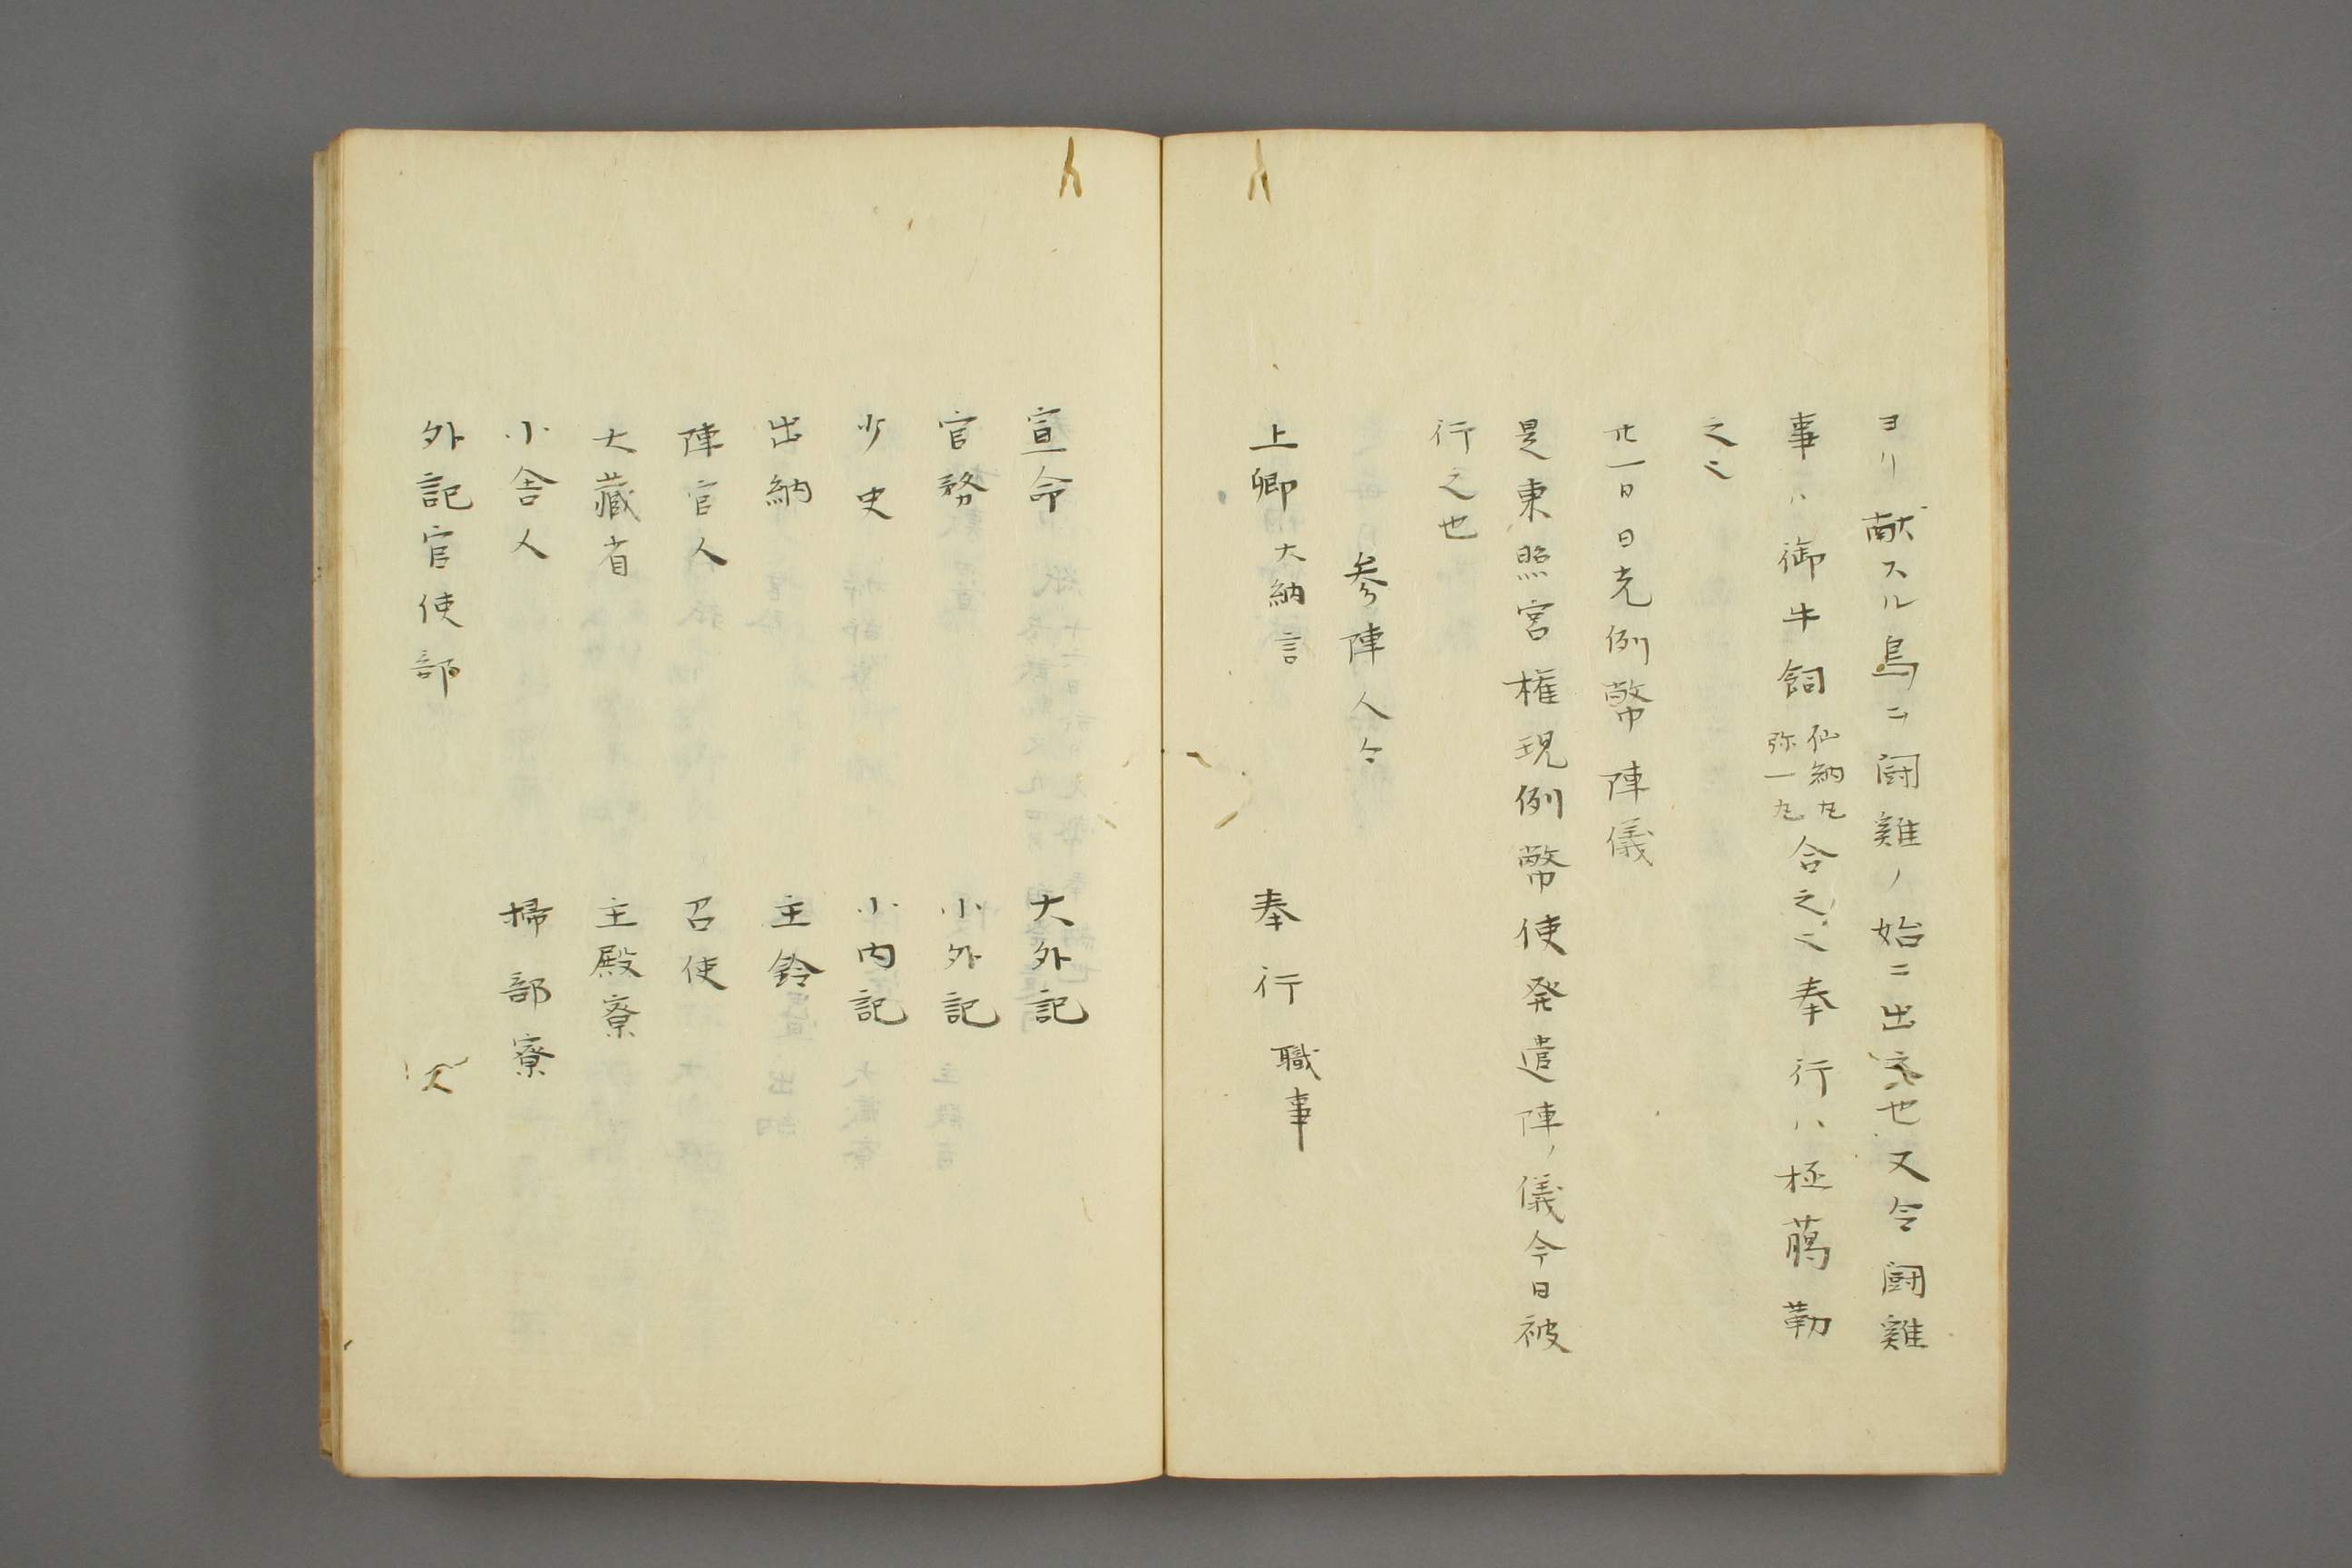 ヨリ献スル鳥ニ闘雞ノ始ニ出ス也又今闘雞
事ハ御牛飼仙納丸弥一丸合之〻奉行ハ極﨟勤
之〻
廿一日日光例幣陣儀
是東照宮権現例幣使発遣陣ノ儀今日被
行之也
参陣人々
上卿大納言 奉行職事
宣命 大外記
官務 小外記
少史 小内記
出納 主鈴
陣官人 召使
大藏省 主殿寮
小舎人 掃部寮
外記官使部